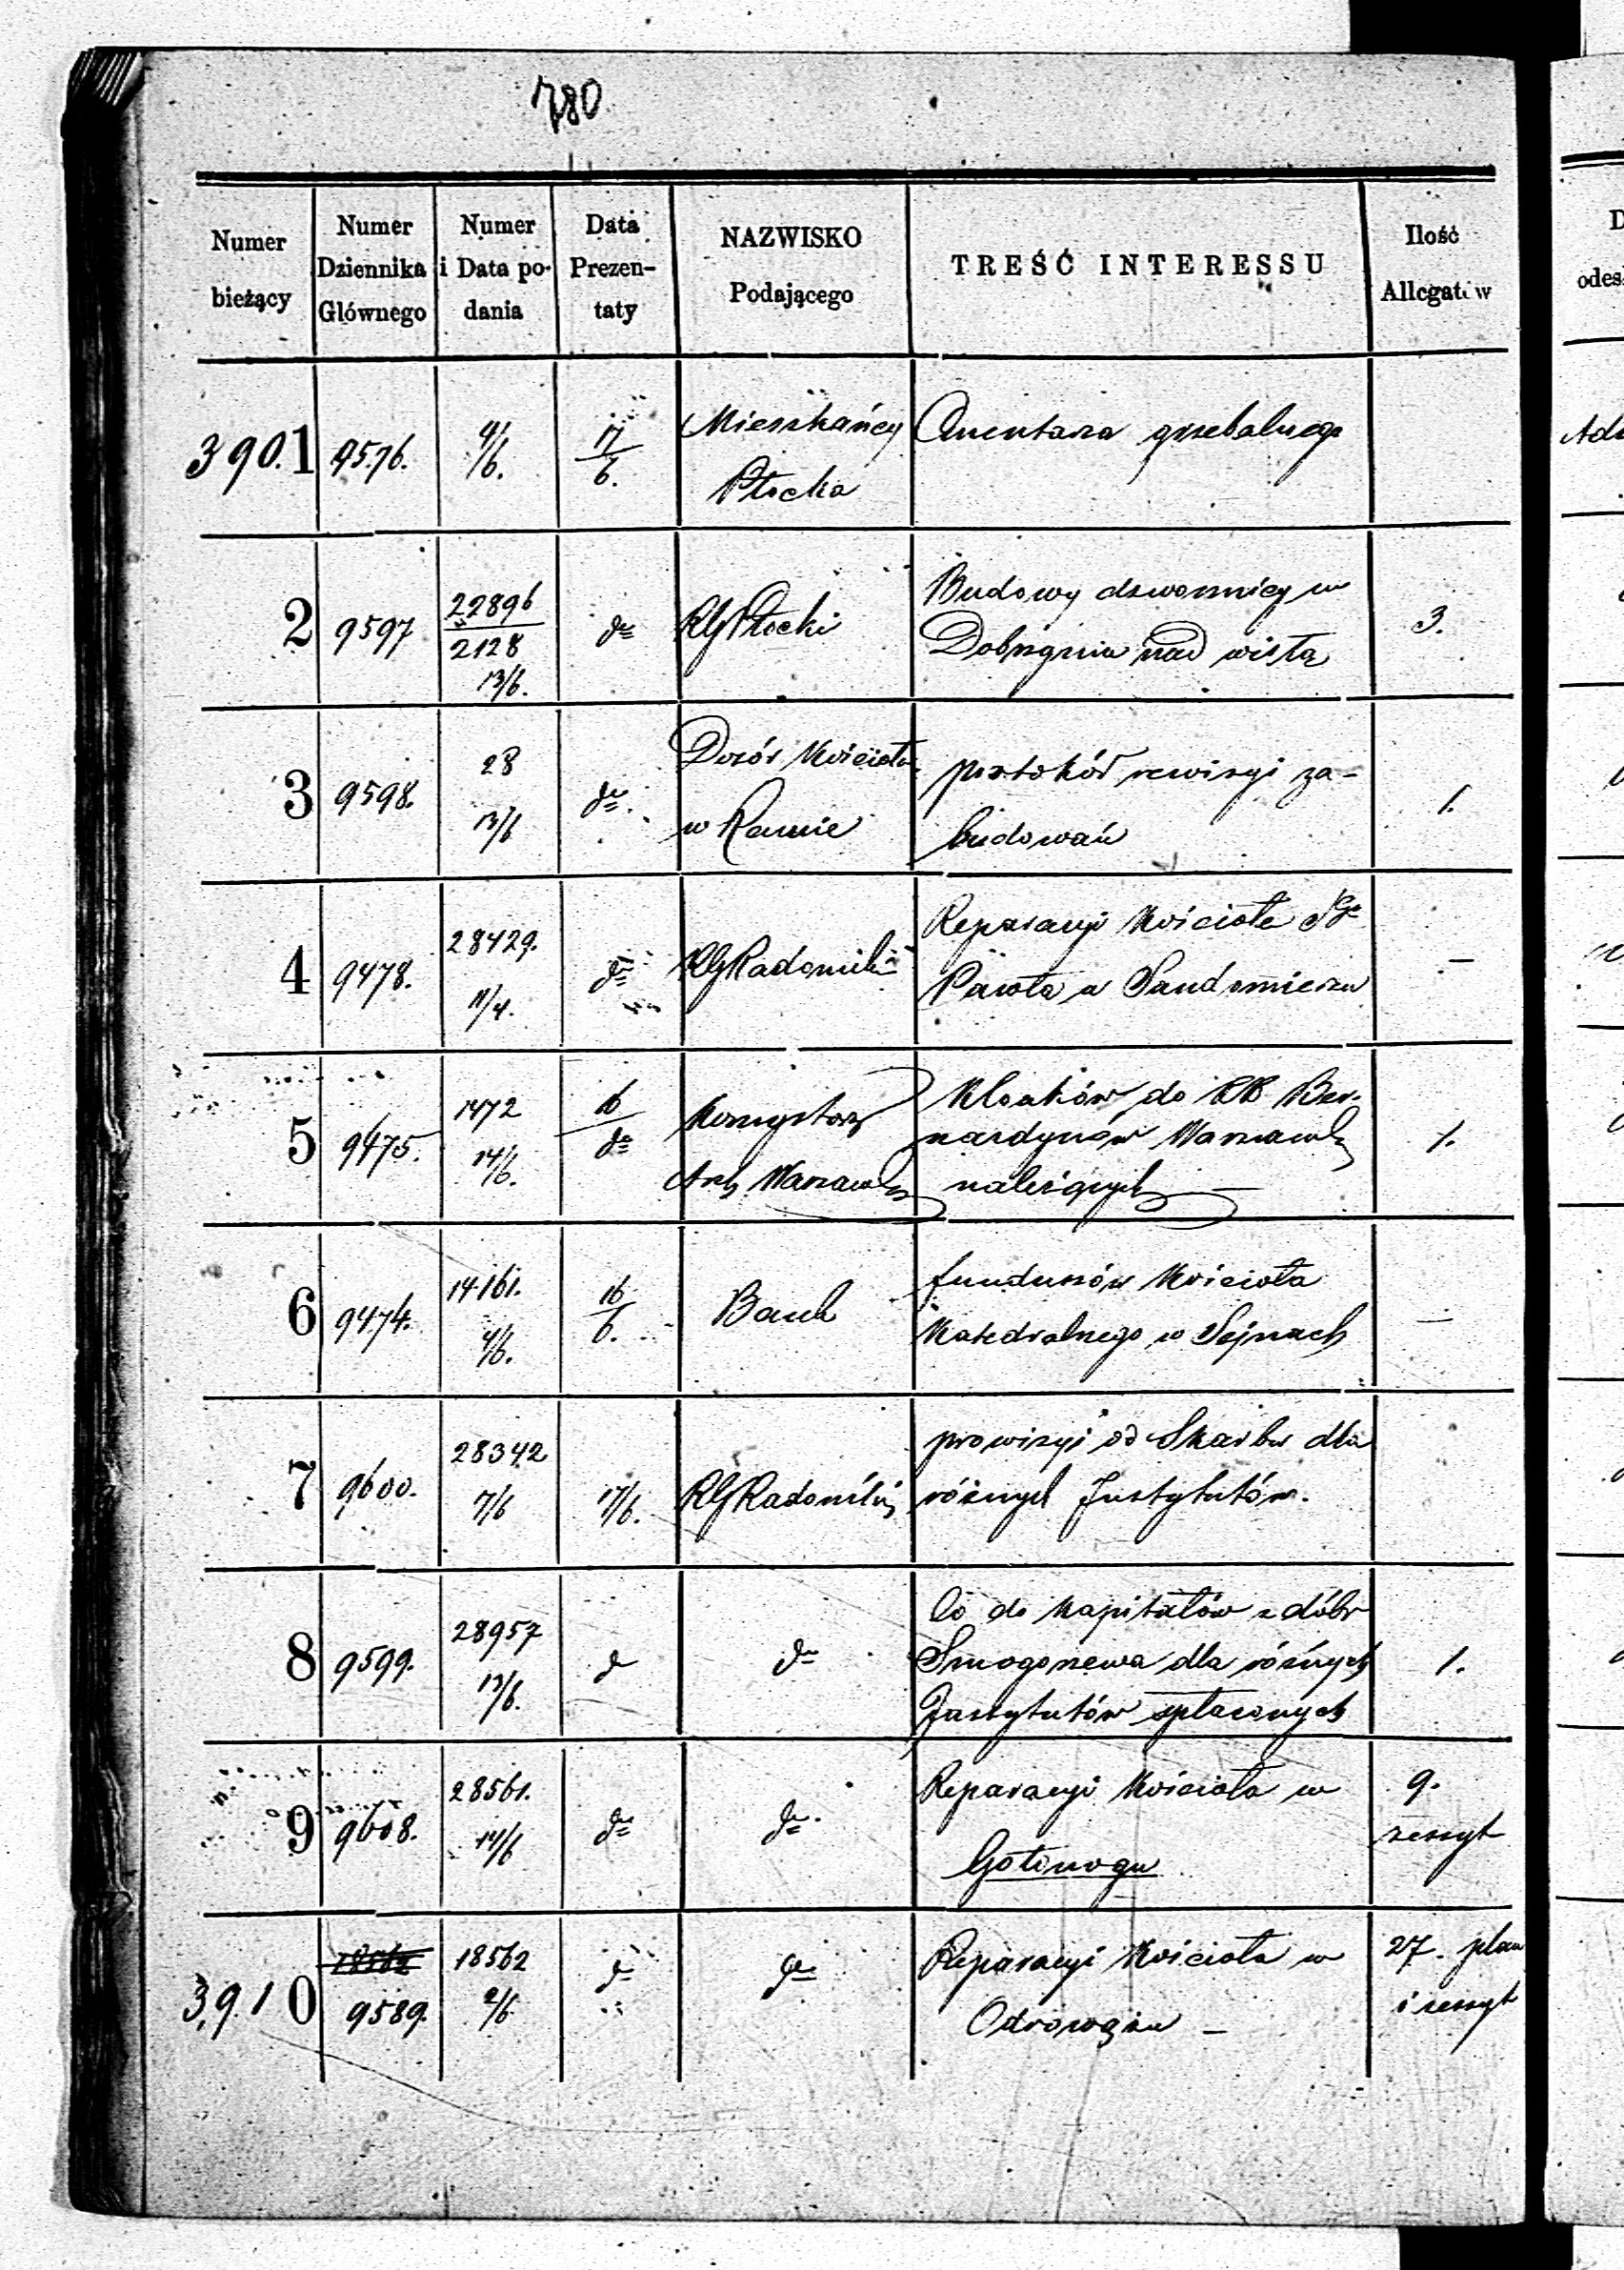 780
Numer bieżący
Numer Dziennika Głównego
Numer i Data podania
Data Prezentaty
NAZWISKO Podającego
TREŚĆ INTERESSU
Ilość Allegatów
3901 9576. 4/6. 17/6. Mieszkańcy Cmentarza grzebalnego
Płocka
2 9597 22896 dto RGPłocki Budowy dzwonnicy w 3.
2128 Dobrzyniu nad wisłą
13/6.
3 9598. 28 dto Dozór Kościoła protokół rewizyi za- 1.
13/6 w Rawie budowań
4 9478. 28429. dto RGRadomski Reparacyi Kościoła Sgo —
11/4. Pawła w Sandomierzu
5 9475. 1472 16/dto Konsystorz Klocków do RR Ber- 1.
14/6. nardynów Warszawsk
Arch Warszawsk należących —
6 9474. 14161. 16/6. Bank funduszów Kościoła —
4/6. Katedralnego w Sejnach
7 9600. 28342 17/6. RGRadomski prowizyi od Skarbu dla
7/6 różnych Instytutów.
8 9599. 28957 do do Co do kapitałów z dóbr 1.
13/6. Smogorzewa dla różnych
Instytutów spłaconych
9 9608. 28561. dto dto Reparacyi Kościoła w 9.
14/6 Gołonogu zeszyt
3910 18562 18562 do dto Reparacyi Kościoła w 27. plan
9589. 2/6 Odrowążu — i zeszyt
D
odes